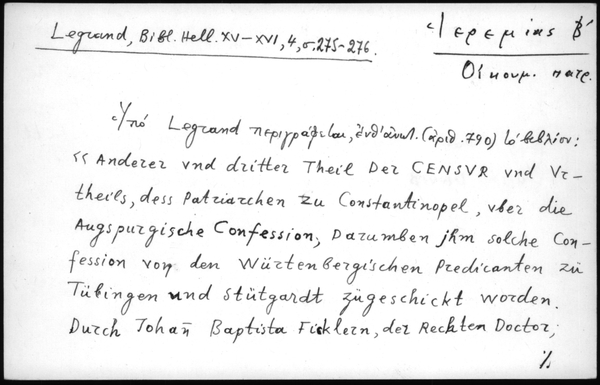 Legrand, Bibl. Hell. XV-XVI, 4, σ. 275-276.
Ἱερεμίας Β΄
Οἰκουμ. πατρ.
Ὑπό Legrand περιγράφεται, ἐνθ' ἀνωτ. (ἀριθ. 790) τό βιβλίον:
« Anderer vnd dritter Theil Der CENSVR vnd Vr-
theils, dess Patriarchen zu Constantinopel, vber die
Augspurgische Confession, Darumben jhm solche Con-
fession von den Würtenbergischen Predicanten zü
Tübingen und Stütgardt zügeschickt worden.
Durch Johañ Baptista Ficklern, der Rechten Doctor,
%